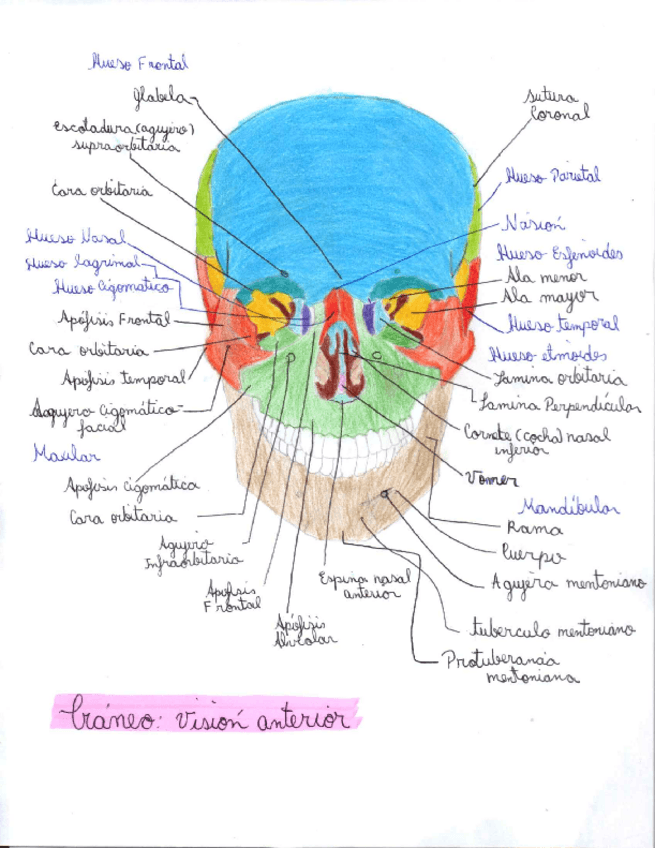 Hueso Frontal
Glabela
escotadura (agujero)
supraorbitaria
Cara orbitaria
Hueso Nasal
Hueso lagrimal
Hueso Cigomatico
Apófisis Frontal
Cara orbitaria
Apófisis temporal
Agujero Cigomático-
facial
Maxilar
Apofisis cigomática
Cara orbitaria
Agujero
Infraorbitaria
Apofisis
Frontal
Apófisis
Alveolar
Espina nasal
anterior
sutura
Coronal
Hueso Parietal
Nasion
Hueso Esfenoides
Ala menor
Ala mayor
Hueso temporal
Hueso etmoides
Lamina orbitaria
Lamina Perpendicular
Cornete (cocha) nasal
inferior
Vomer
Mandíbular
Rama
Cuerpo
Agujero mentoniano
tuberculo mentoniano
Protuberancia
mentoniana
Cráneo: visión anterior